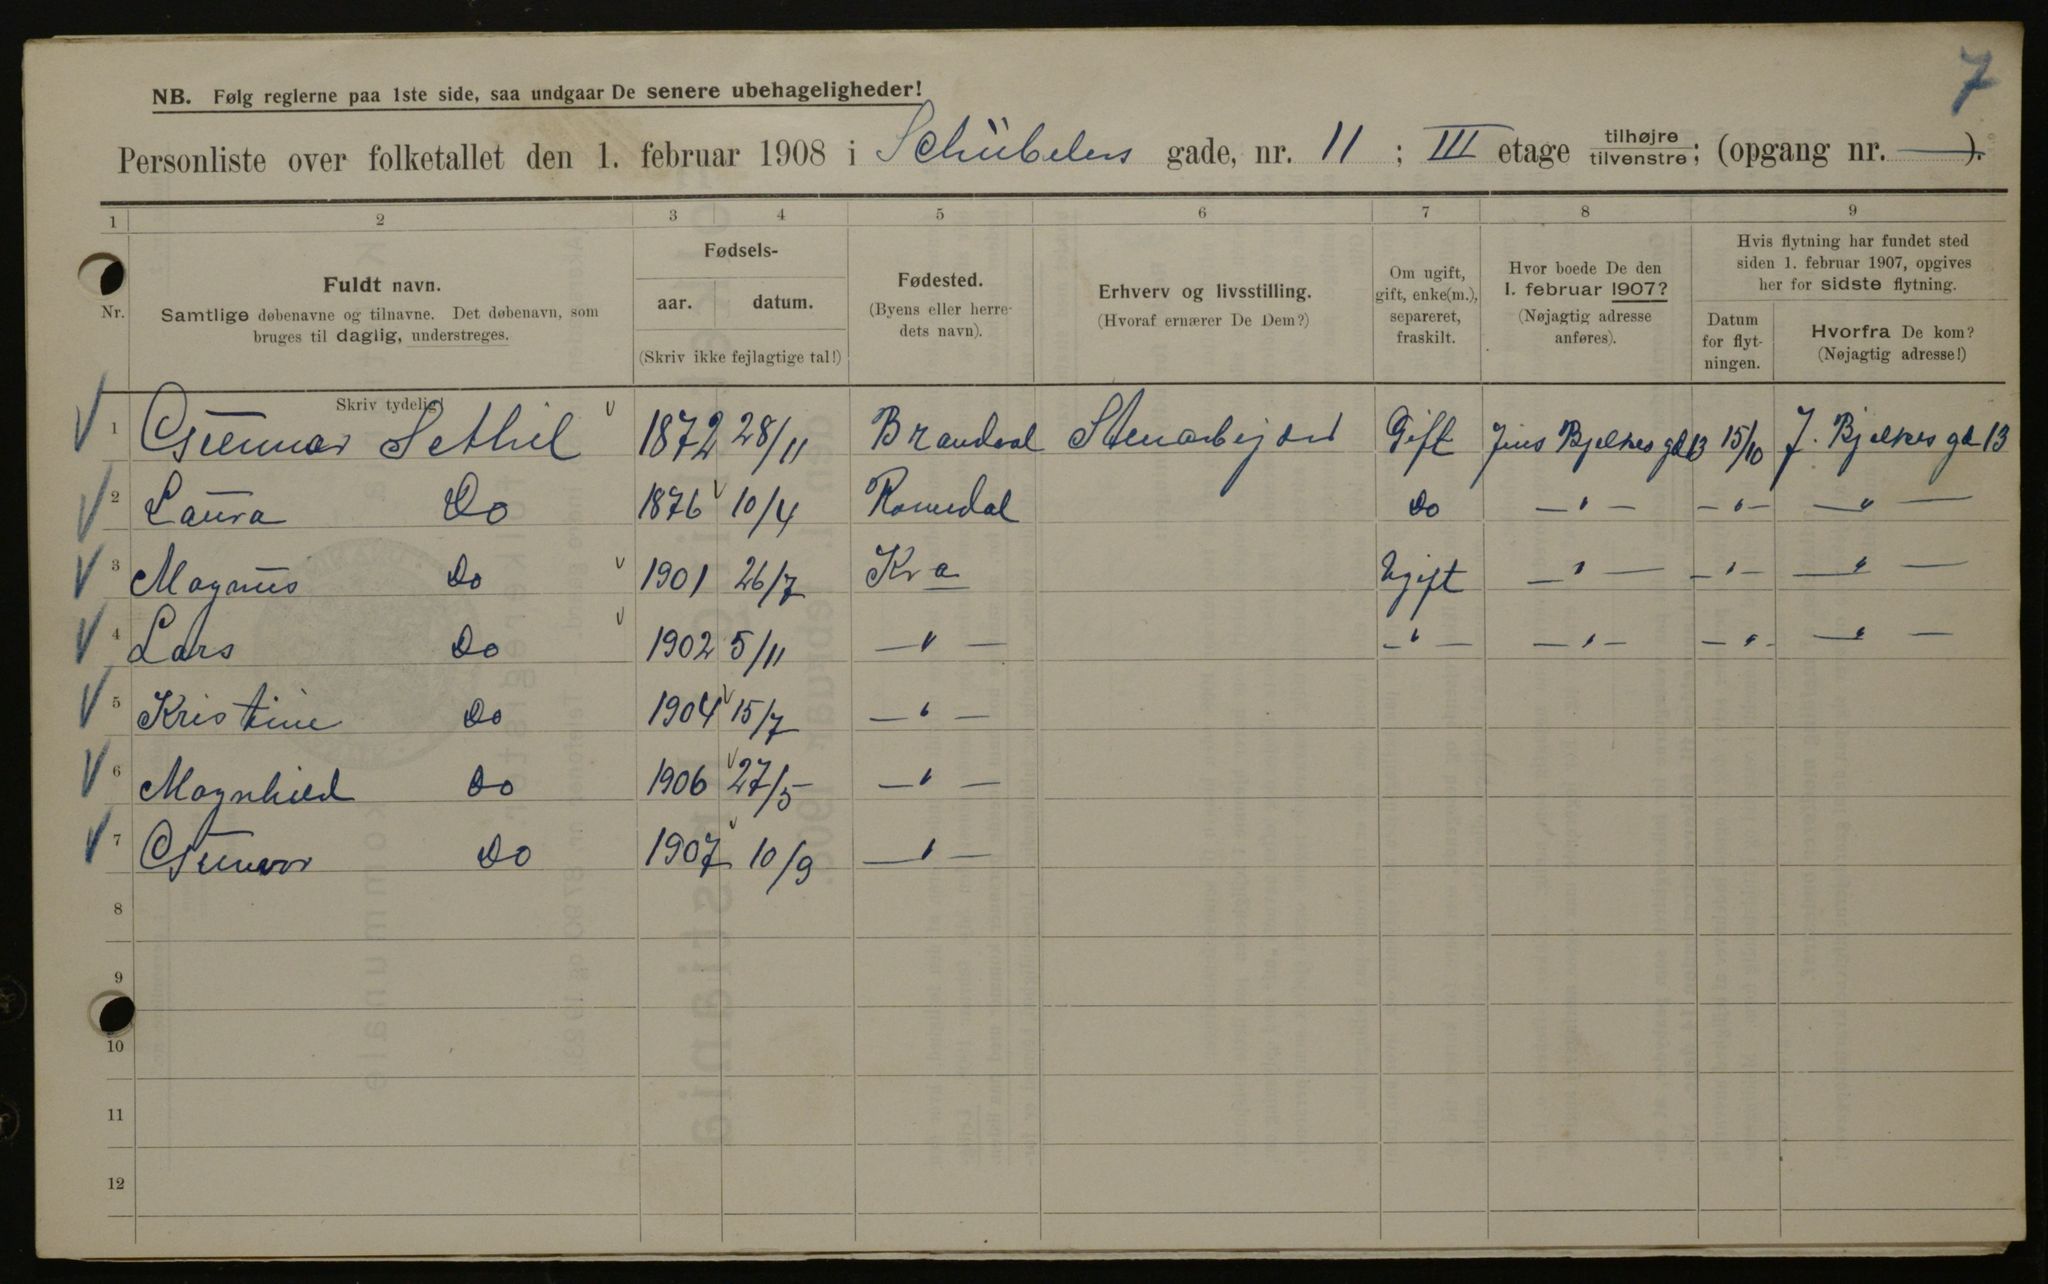 7
NB. Følg reglerne paa 1ste side, saa undgaar De senere ubehageligheder!
Personliste over folketallet den 1. februar 1908 i Schübelers gade, nr. 11 ; III etage tilhøjre tilvenstre; (opgang nr. — ).
1 2 3 4 5 6 7 8 9
Nr.
Fuldt navn.
Samtlige døbenavne og tilnavne. Det døbenavn, som
bruges til daglig, understreges.
Skriv tydelig!
Fødsels-
aar. datum.
(Skriv ikke fejlagtige tal!)
Fødested.
(Byens eller herre-
dets navn).
Erhverv og livsstilling.
(Hvoraf ernærer De Dem?)
Om ugift,
gift, enke(m.),
separeret,
fraskilt.
Hvor boede De den
1. februar 1907?
(Nøjagtig adresse
anføres).
Hvis flytning har fundet sted
siden 1. februar 1907, opgives
her for sidste flytning.
Datum
for flyt-
ningen.
Hvorfra De kom?
(Nøjagtig adresse!)
1 Gunnar Sethil 1872 28/11 Brandval Stenarbejder Gift Jens Bjelkes gd 13 15/10 J. Bjelkes gd 13
2 Laura Do 1876 10/4 Romedal Do — " — — " — — " —
3 Magnus Do 1901 26/7 Kra Ugift — " — — " — — " —
4 Lars Do 1902 5/11 — " — — " — — " — — " — — " —
5 Kristine Do 1904 15/7 — " —
6 Magnhild Do 1906 27/5 — " —
7 Gunvor Do 1907 10/9 — " —
8
9
10
11
12